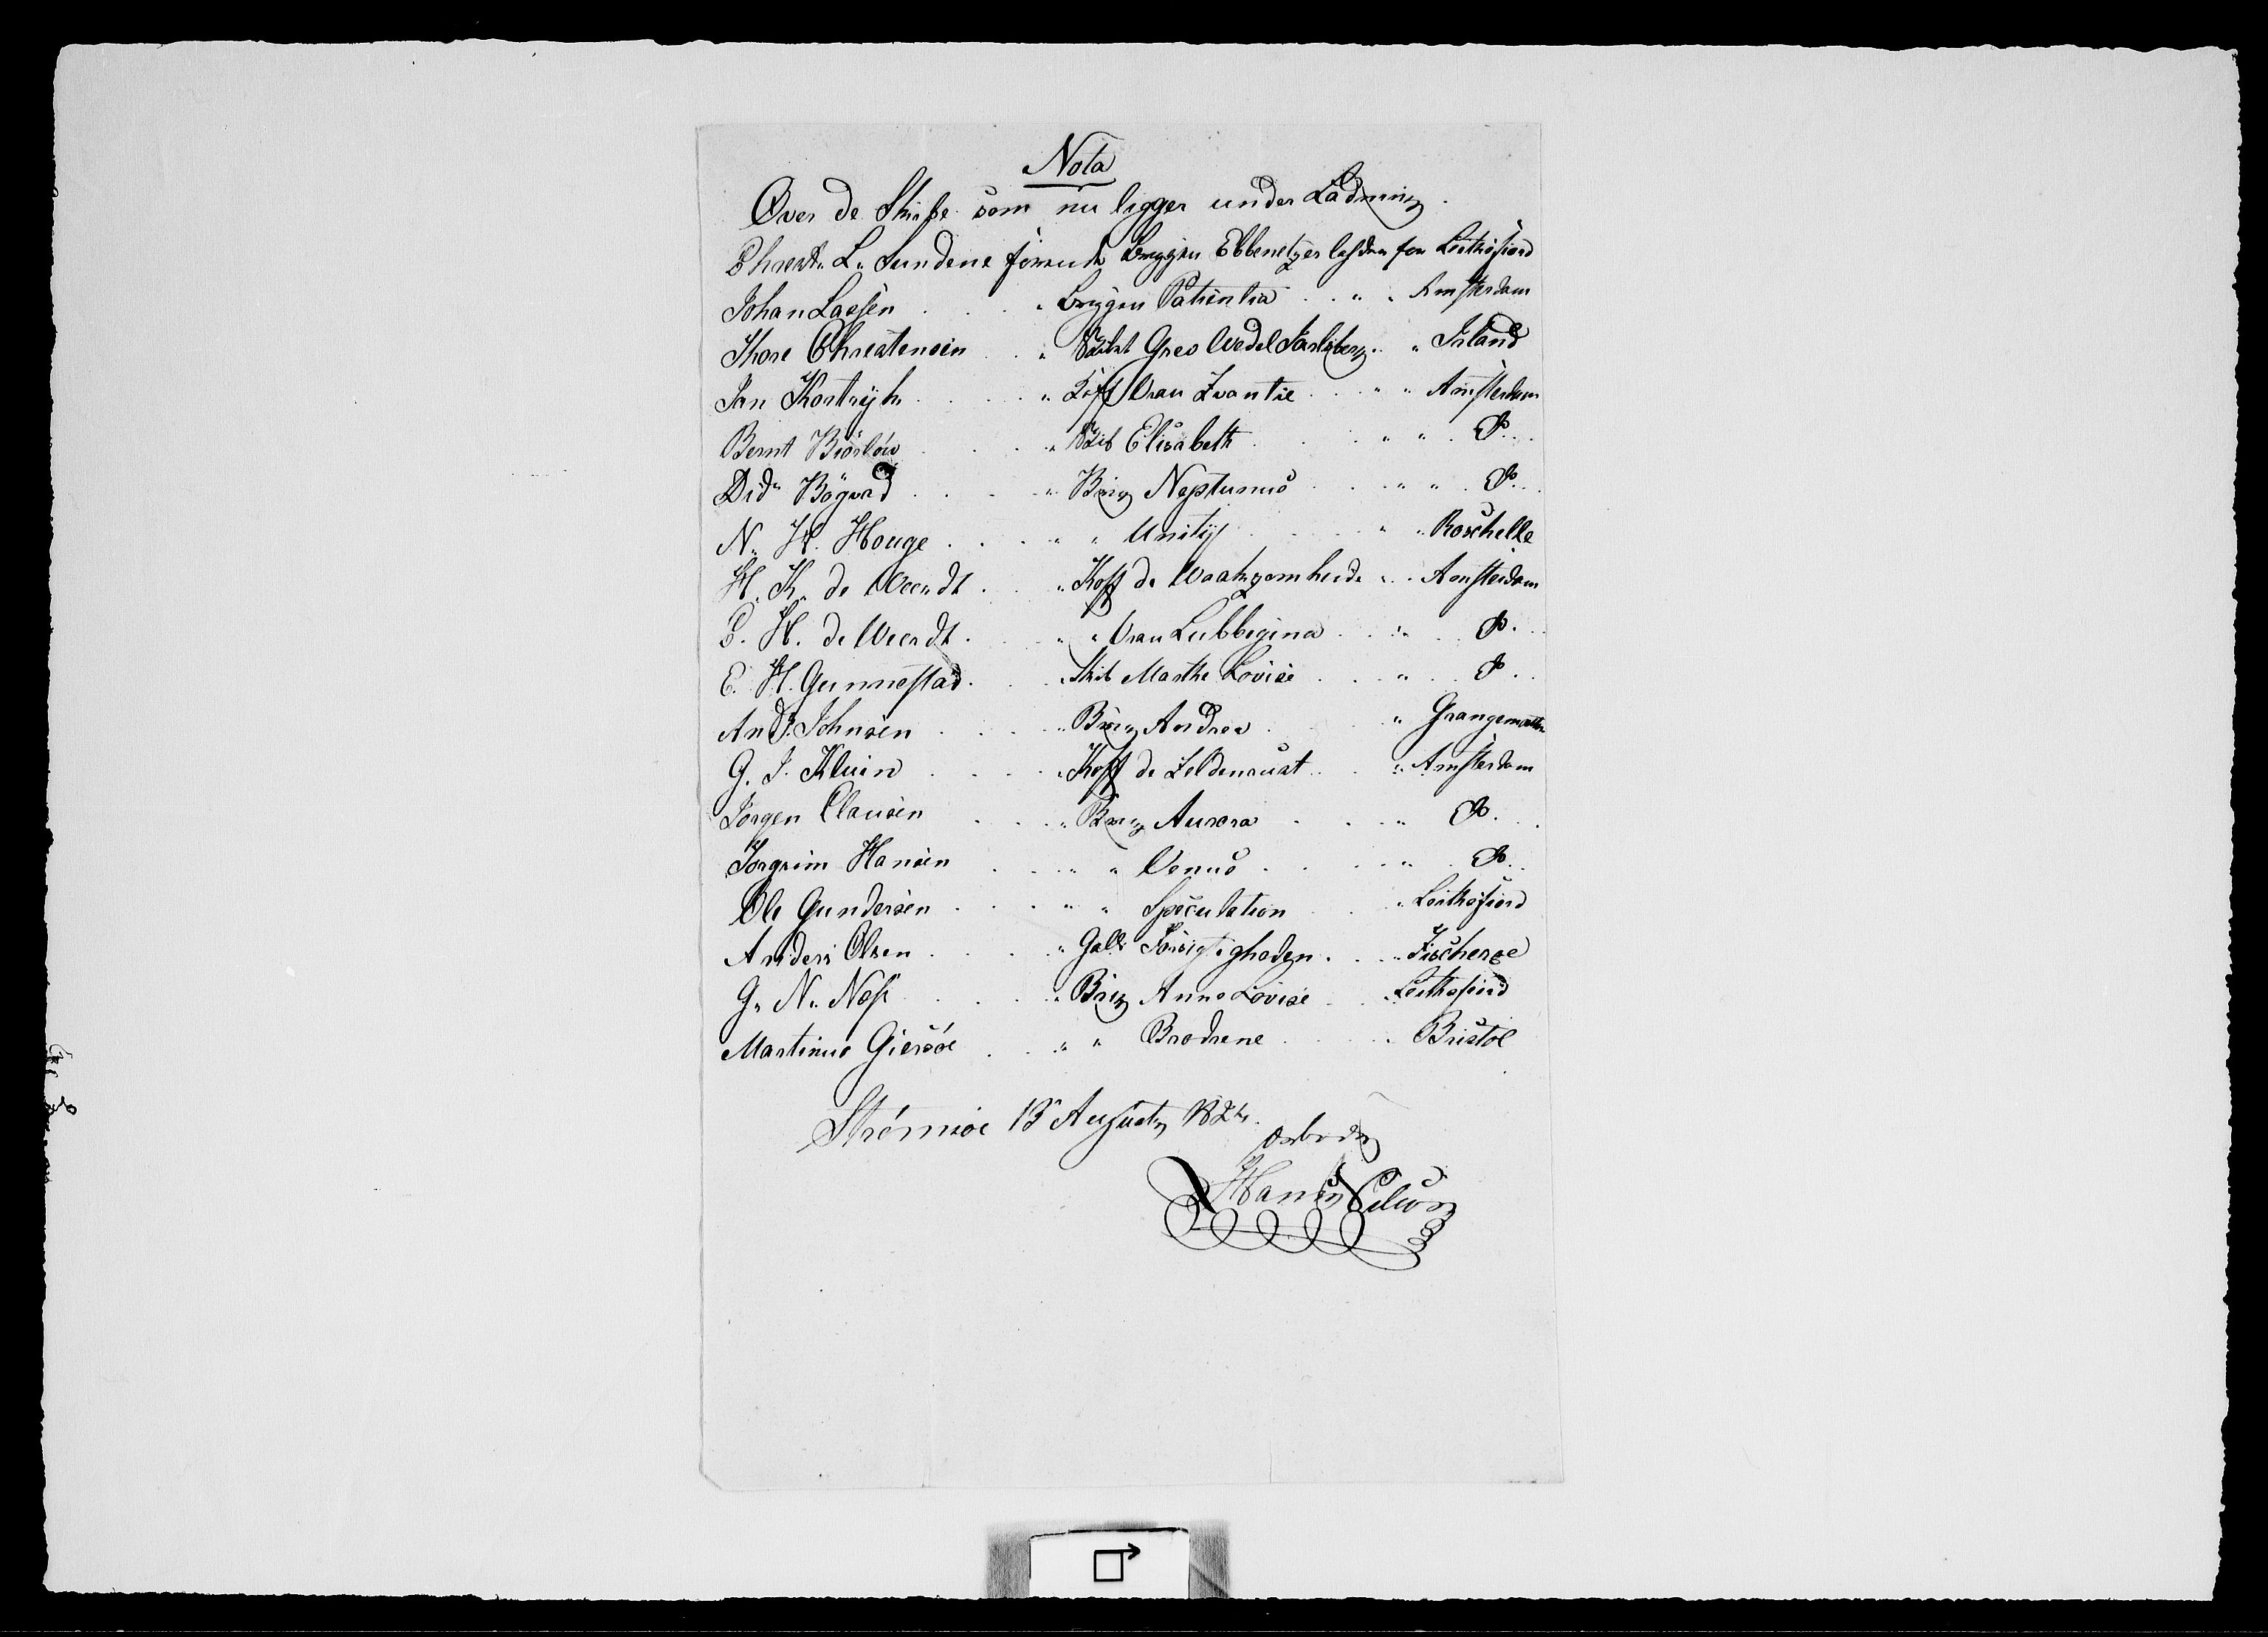 Nota
Over de Skibe som nu ligger under Ladning.
Christ. L. Sundene förende Briggen Ebbenetzer for Leithsfiord
Johan Lassen . . . " Briggen Patientia . . " . Amsterdam
Thore Christensen . . " Skibet Grev Wedel Jarlsberg . . " Irland
Jan Kortryk . . . " Koff Vrau Zwantie . . " " Amsterdam
Bernt Biörlöw . . . " Skib Elisabeth . . " " . Do . .
Did. Bögvad . . . " Brig Neptunus . . " " . Do . .
N. H. Houge . . . " " Unity . . " " Roschelle
H. K. de Weerdt . . " Koff de Waakzomheide " . . Amsterdam
P. H. de Weerdt . . " " Vrau Lubbegina . . " . Do . .
E. H. Gunnestad . . " Skib Marthe Lovise . . " . Do . .
And. Johnsen . . . " Brig Andrea . . " Grangemouth
G. J. Kluin . . . " Koff de Zeldenrust . . " Amsterdam
Jörgen Clausen . . . " Brig Aurora . . " Do . .
Torgrim Hansen . . . " " Venus . . " . Do .
Ole Gundersen . . . " " Speculation . . " Leithsfiord
Anders Olsen . . . " Galli Forsigtigheden . . " Fischeroe
G. N. Næss . . . " Brig Anne Lovise . . " Leithsfiord
Martinus Giersöe . . " " Brödrene . . . Bristol
Strömsöe 13 August 1824.
Hans